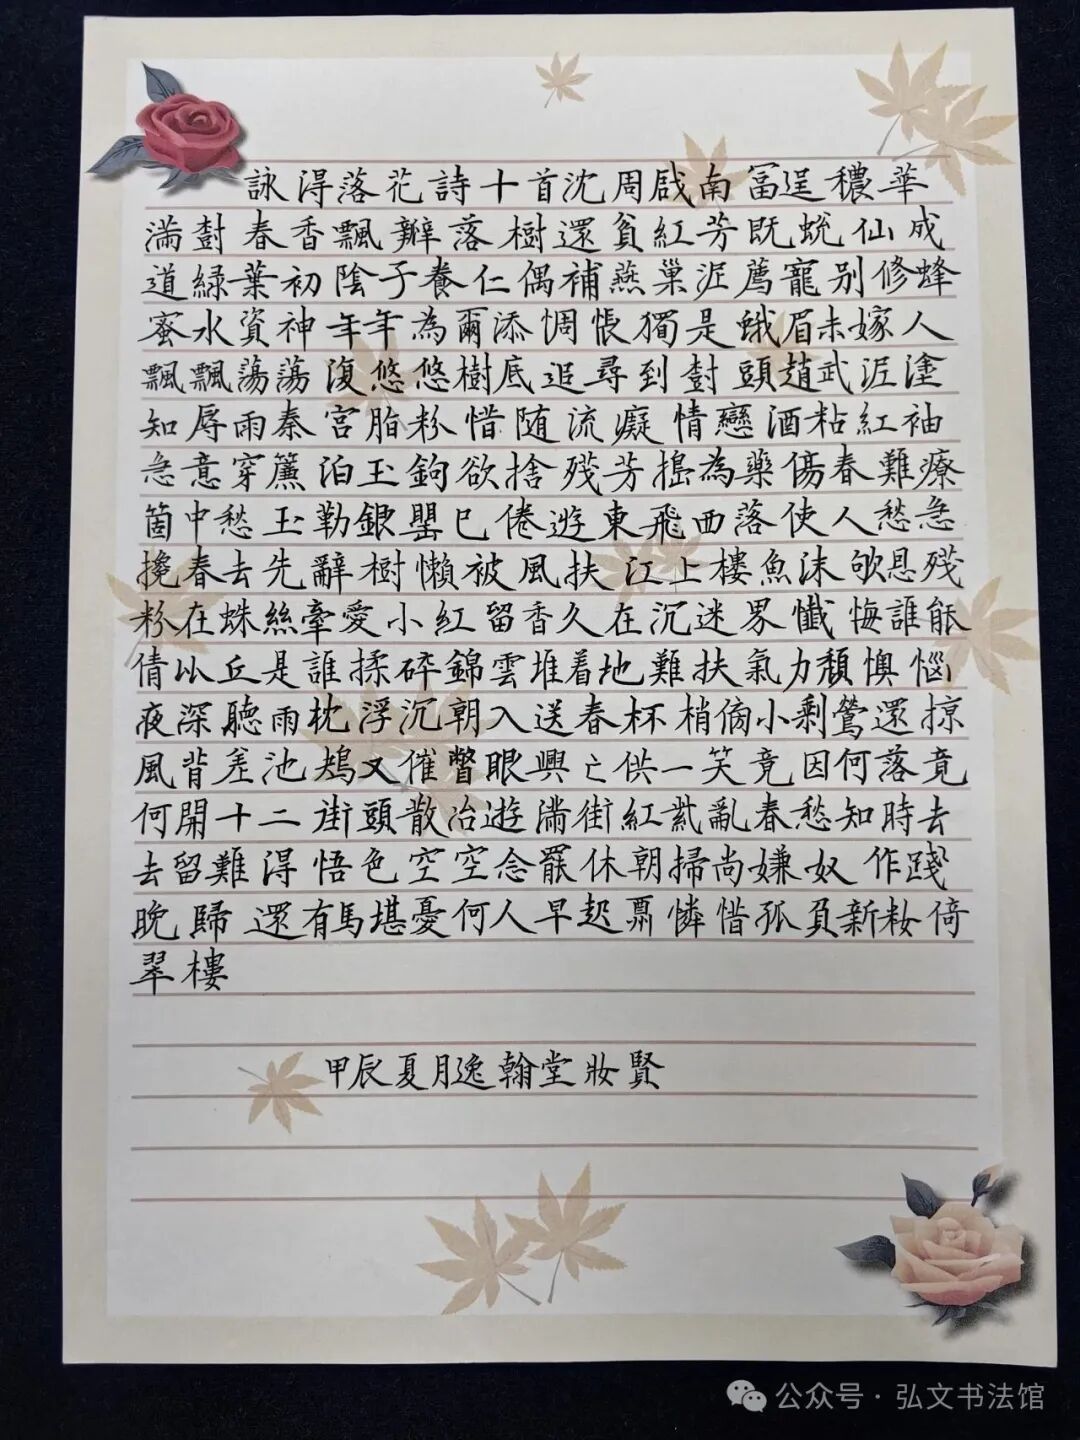 詠得落花詩十首沈周啟南富逞穠華
滿樹春香飄瓣落樹還貧紅芳既蛻仙成
道綠葉初陰子養仁偶補燕巢泥薦寵別修蜂
蜜水資神年年為爾添惆悵獨是蛾眉未嫁人
飄飄蕩蕩復悠悠樹底追尋到樹頭趙武泥塗
知辱雨秦宮脂粉惜隨流癡情戀酒粘紅袖
急意穿簾泊玉鉤欲捨殘芳搗為藥傷春難療
箇中愁玉勒銀罌已倦遊東飛西落使人愁急
攙春去先辭樹懶被風扶江上樓魚沫吹恩殘
粉在蛛絲牽愛小紅留香久在沉迷界懺悔誰能
倩比丘是誰揉碎錦雲堆着地難扶氣力頹懊惱
夜深聽雨枕浮沉朝入送春杯梢傍小剩鶯還掠
風背差池鴆又催瞥眼興亡供一笑竟因何落竟
何開十二街頭散冶遊滿街紅紫亂春愁知時去
去留難得悟色空空念罷休朝掃尚嫌奴作踐
晚歸還有馬堪憂何人早起鬧憐惜孤負新妝倚
翠樓
甲辰夏月逸翰堂妝賢
公众号·弘文书法馆